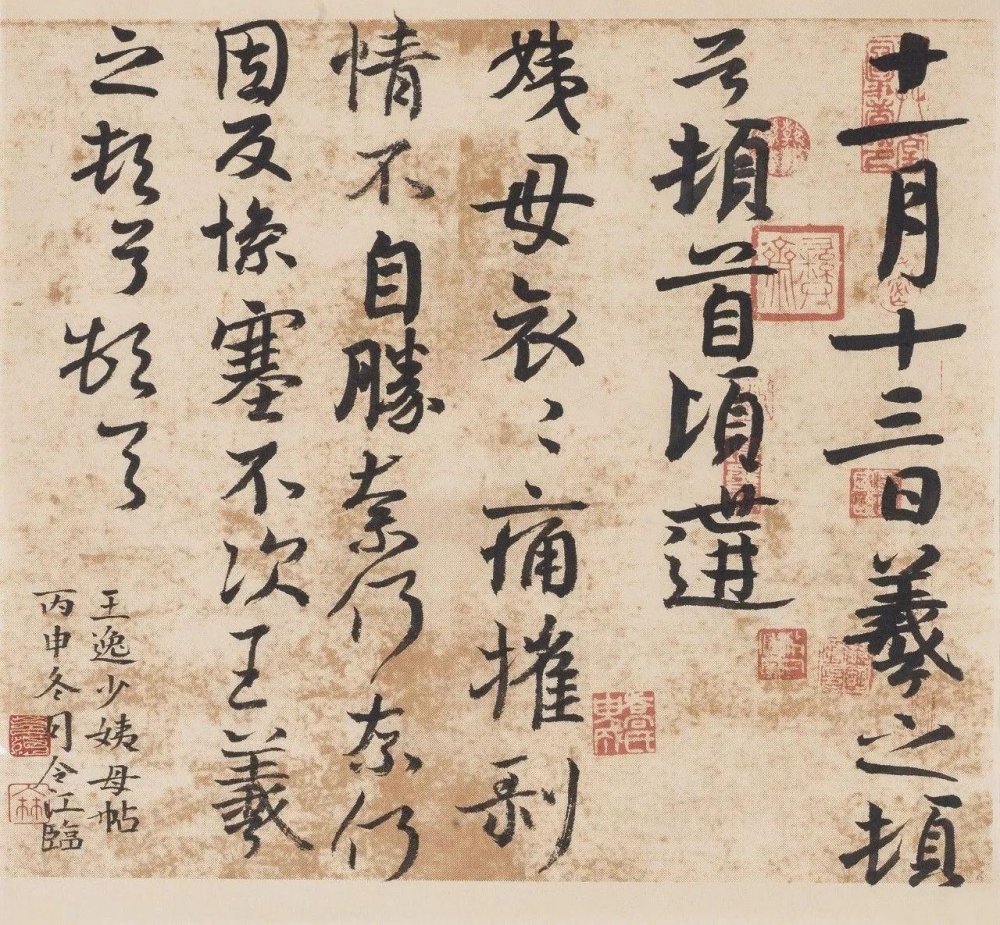 十一月十三日羲之頓
首頓首頃遘
姨母哀〻痛摧剝
情不自勝奈何奈何
因反慘塞不次王羲
之頓首頓首
王逸少姨母帖
丙申冬令江臨